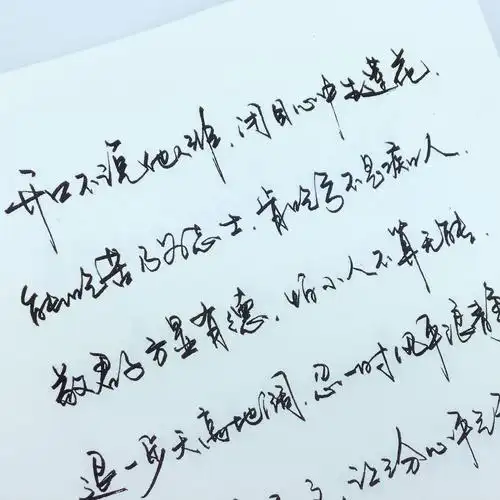 开口不说他人非,闭目心中生莲花.
能吃苦乃为志士,肯吃亏不是痴人.
敬君子方显有德,怕小人不算无能.
退一步天高地阔,忍一时风平浪静
让三分心平气